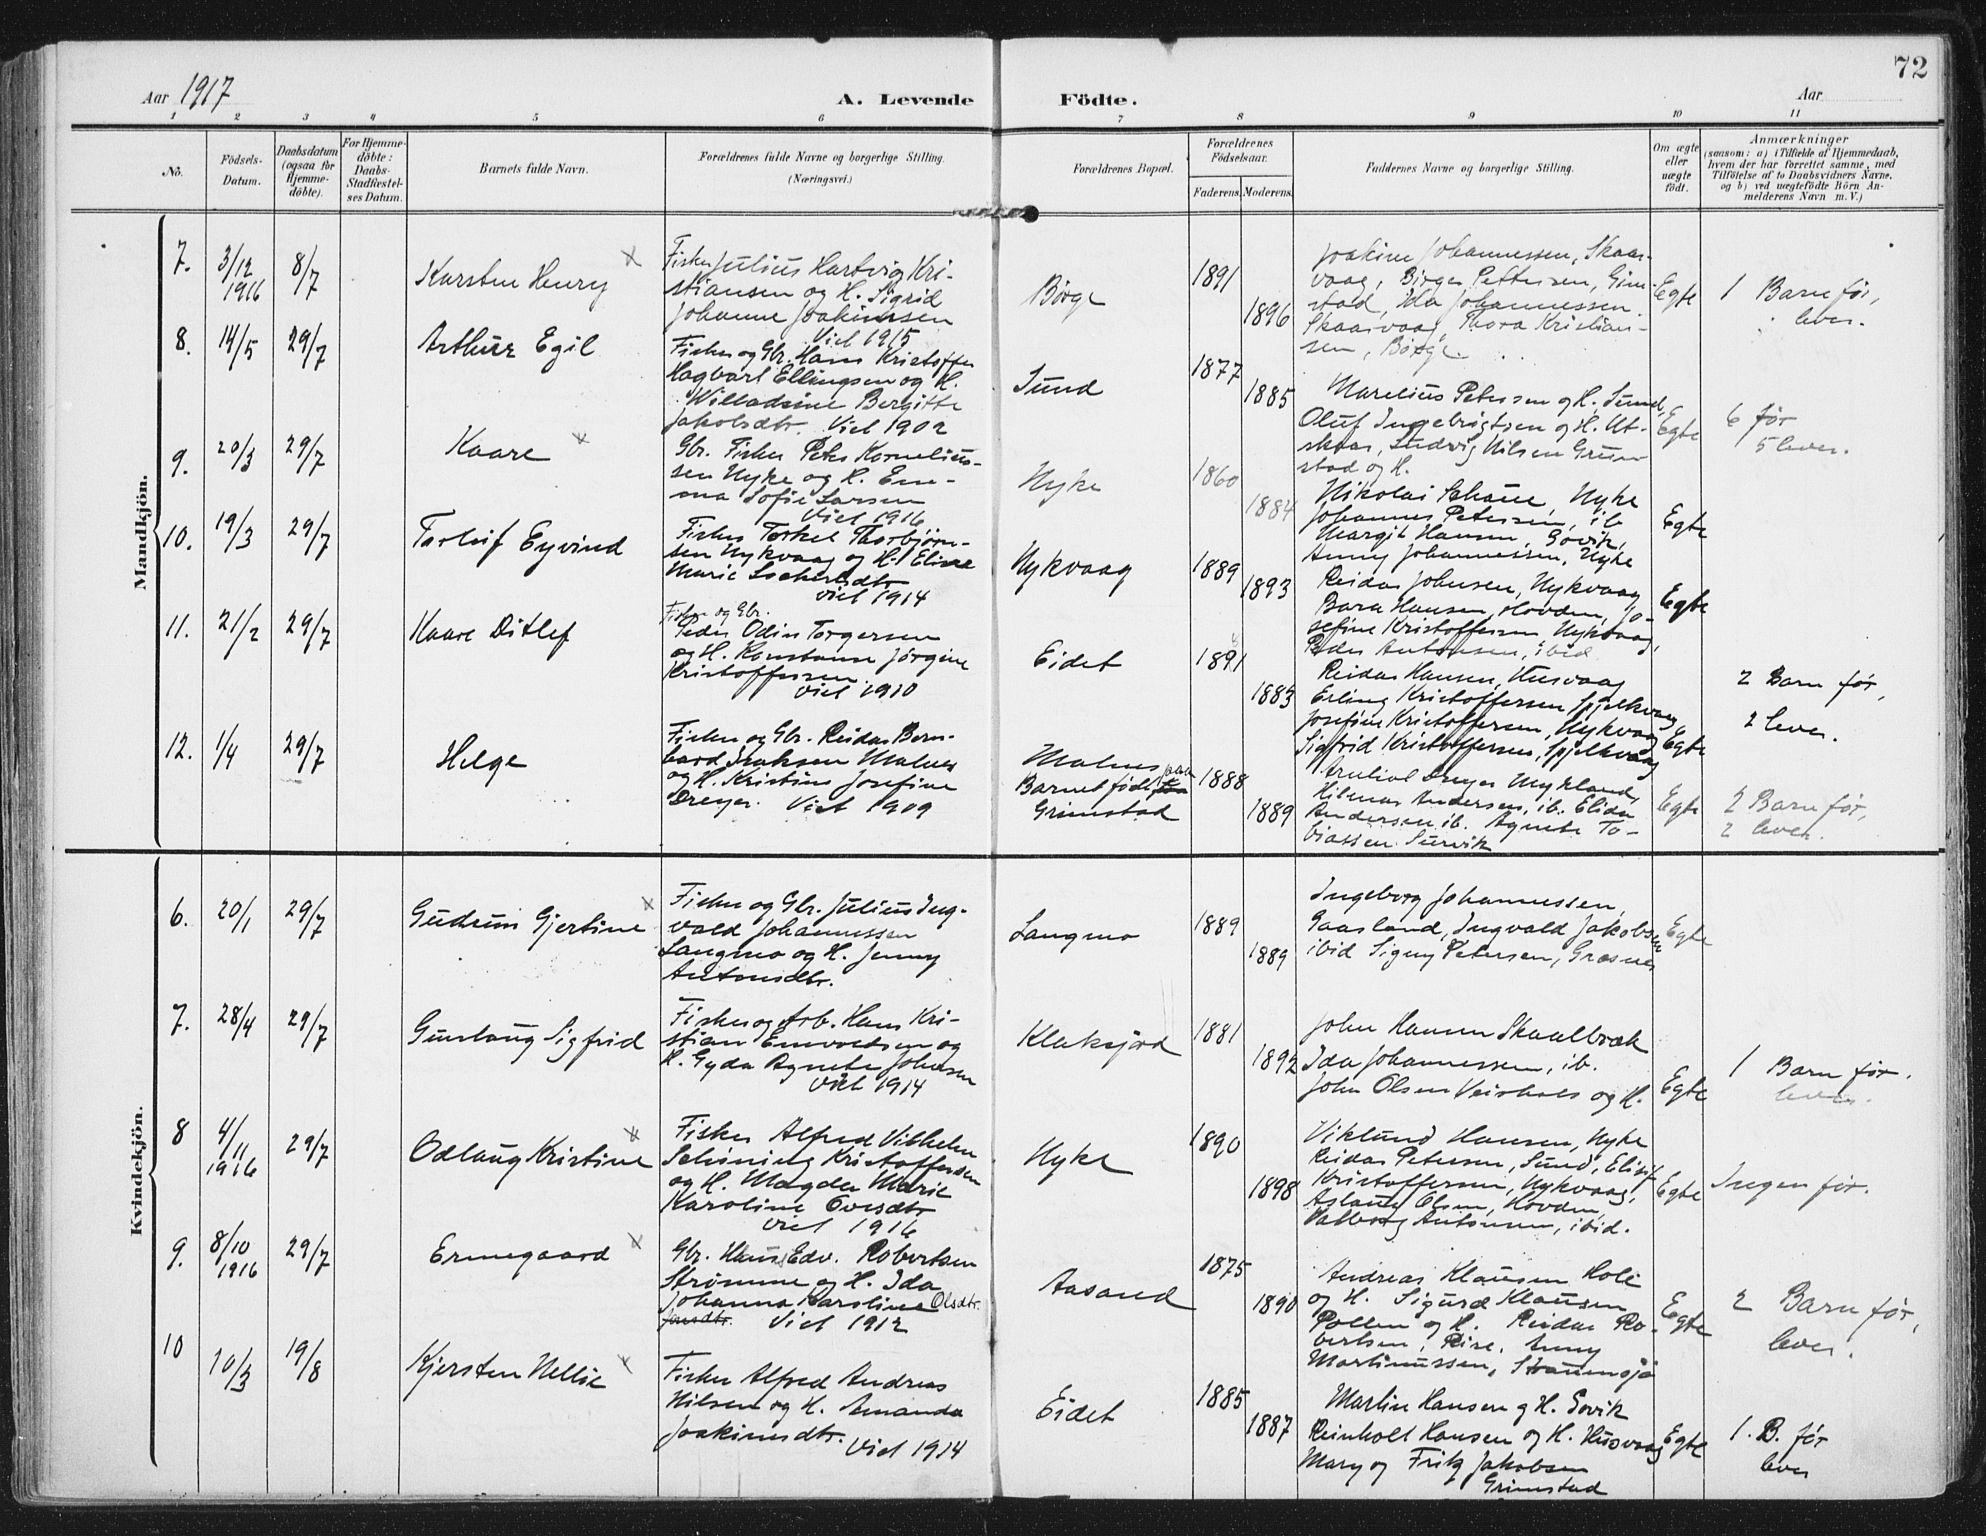 72
Aar 1917
A. Levende Födte.
Aar
1 2 3 4 5 6 7 8 9 10 11
No.
Födsels-Datum.
Daabsdatum (ogsaa för Hjemmedöbte).
For Hjemmedöbte: Daabs-Stadfæstelses Datum.
Barnets fulde Navn.
Forældrenes fulde Navne og borgerlige Stilling. (Næringsvei.)
Forældrenes Bopæl.
Forældrenes Födselsaar.
Faderens. Moderens.
Faddernes Navne og borgerlige Stilling.
Om ægte eller uægte födt.
Anmærkninger
(saasom: a) i Tilfælde af Hjemmedaab,
hvem der har forrettet samme, med
Tilföielse af to Daabsvidners Navne,
og b) ved uægtefödte Börn An-
melderens Navn m. V.)
Mandkjön.
7. 3/12 1916 8/7 Karsten Henry
Fisker Julius Hartvig Kri-
stiansen og H. Sigrid
Johanne Joakimsen
Viet 1915
Børge 1891 1896
Joakim Johannessen, Skaar-
vaag, Birger Pettersen, Grim-
stad, Ida Johannessen
Skaarvaag, Thora Kristian-
sen, Børge.
Egte
1 Barn før,
lever.
8. 14/5 29/7 Arthur Egil
Fisker og Gbr. Hans Kristoffer
Hagbart Ellingsen og H.
Willadsine Bergitte
Jakobsdtr. Viet 1902
Sund 1877 1885
Marelius Petersen og H. Sund,
Oluf Ingebrigtsen og H. Ut-
skaar, Ludvig Nilsen Grim-
stad og H.
Egte
6 før
5 lever.
9. 20/3 29/7 Kaare
Gbr. Fisker Peter Kornelius-
sen Nyke og H. Em-
ma Sofie Larsen
Viet 1916
Nyke 1860 1884
Nikolai Schöne, Nyke
Johannes Petersen, ib
Margit Hansen, Govik,
Anny Johannessen, Nyke
Egte
10. 19/3 29/7 Torleif Eyvind
Fisker Torkel Thorbjørn-
sen Nykvaag og H. Eline
Marie
viet 1914
Nykvaag 1889 1893
Reidar Johnsen, Nykvaag
Bara Hansen, Hovden, Jo-
sefine Kristoffersen, Nykvaag,
Peder Antonsen, ibid
Egte
11. 21/2 29/7 Kaare Ditlef
Fisker og Gbr.
Peder Odin Torgersen
og H. Konstanse Jørgine
Kristoffersen
viet 1910
Eidet 1891 1883
Reidar Hansen, Husvaag
Erling Kristoffersen Spjelkvaag
Josefine Kristoffersen, Nykvaag
Sigfrid Kristoffersen, Spjelkvaag
Egte
2 Barn før,
2 lever.
12. 1/4 29/7 Helge
Fisker og Gbr. Reidar Bern-
hard Isaksen Malnes
og H. Kristine Josefine
Dreyer. Viet 1909
Malnes
Barnet født paa
Grimstad
1888 1889
Arnliot Dreyer Myrland,
Hilmar Andersen, ib. Elida
Andersen ib. Agnete To-
biassen Survik
Egte
2 Barn før,
2 lever.
Kvindekjön.
6. 20/1 29/7 Gudrun Gjertine
Fisker og Gbr. Julius Ing-
vald Johannessen
Langmo og H. Jenny
Antonsdtr.
Langmo 1889 1889
Ingeborg Johannessen,
Gaasland, Ingvald Jakobsen
ibid Signy Petersen, Grasnes
Egte
7. 28/4 29/7 Gunlaug Sigfrid
Fisker og Arb. Hans Kri-
stian Envoldsen og
H. Gyda Agnete Johnsen
viet 1914
Klaksjord 1881 1892
John Hansen Skaalbræk
Ida Johannessen, ib.
John Olsen Veishols og H.
Egte
1 Barn før.
lever.
8 4/11 1916 29/7 Odlaug Kristine
Fisker Alfred Vilhelm
Schöning Kristoffersen
og H. Magda Marie
Karoline Ovesdtr
viet 1916
Nyke 1890 1898
Viklund Hansen, Nyke
Reidar Petersen, Sund, Elisif
Kristoffersen, Nykvaag,
Aslaug Olsen, Hovden,
Valborg Antonsen, ibid.
Egte
Ingen før.
9. 8/10 1916 29/7 Ermegaard
Gbr. Hans Edv. Robertsen
Strømme og H. Ida
Johanna Karoline Olsdtr.
Jonsdtr. Viet 1912
Aasand 1875 1890
Andreas Klausen Hole
og H. Sigurd Klausen
Pollen og H. Reidar Ro-
bertsen, Rise, Anny
Martinussen, Straumsjø
Egte
2 Barn før,
lever.
10 10/3 19/8 Kjersten Nellie
Fisker Alfred Andreas
Nilsen og H. Amanda
Joakimsdtr. Viet 1914
Eidet 1885 1887
Martin Hansen og H. Govik
Reinholt Hansen og H. Husvaag
Mary og Fritz Jakobsen
Grimstad
Egte
1. B. før
lever